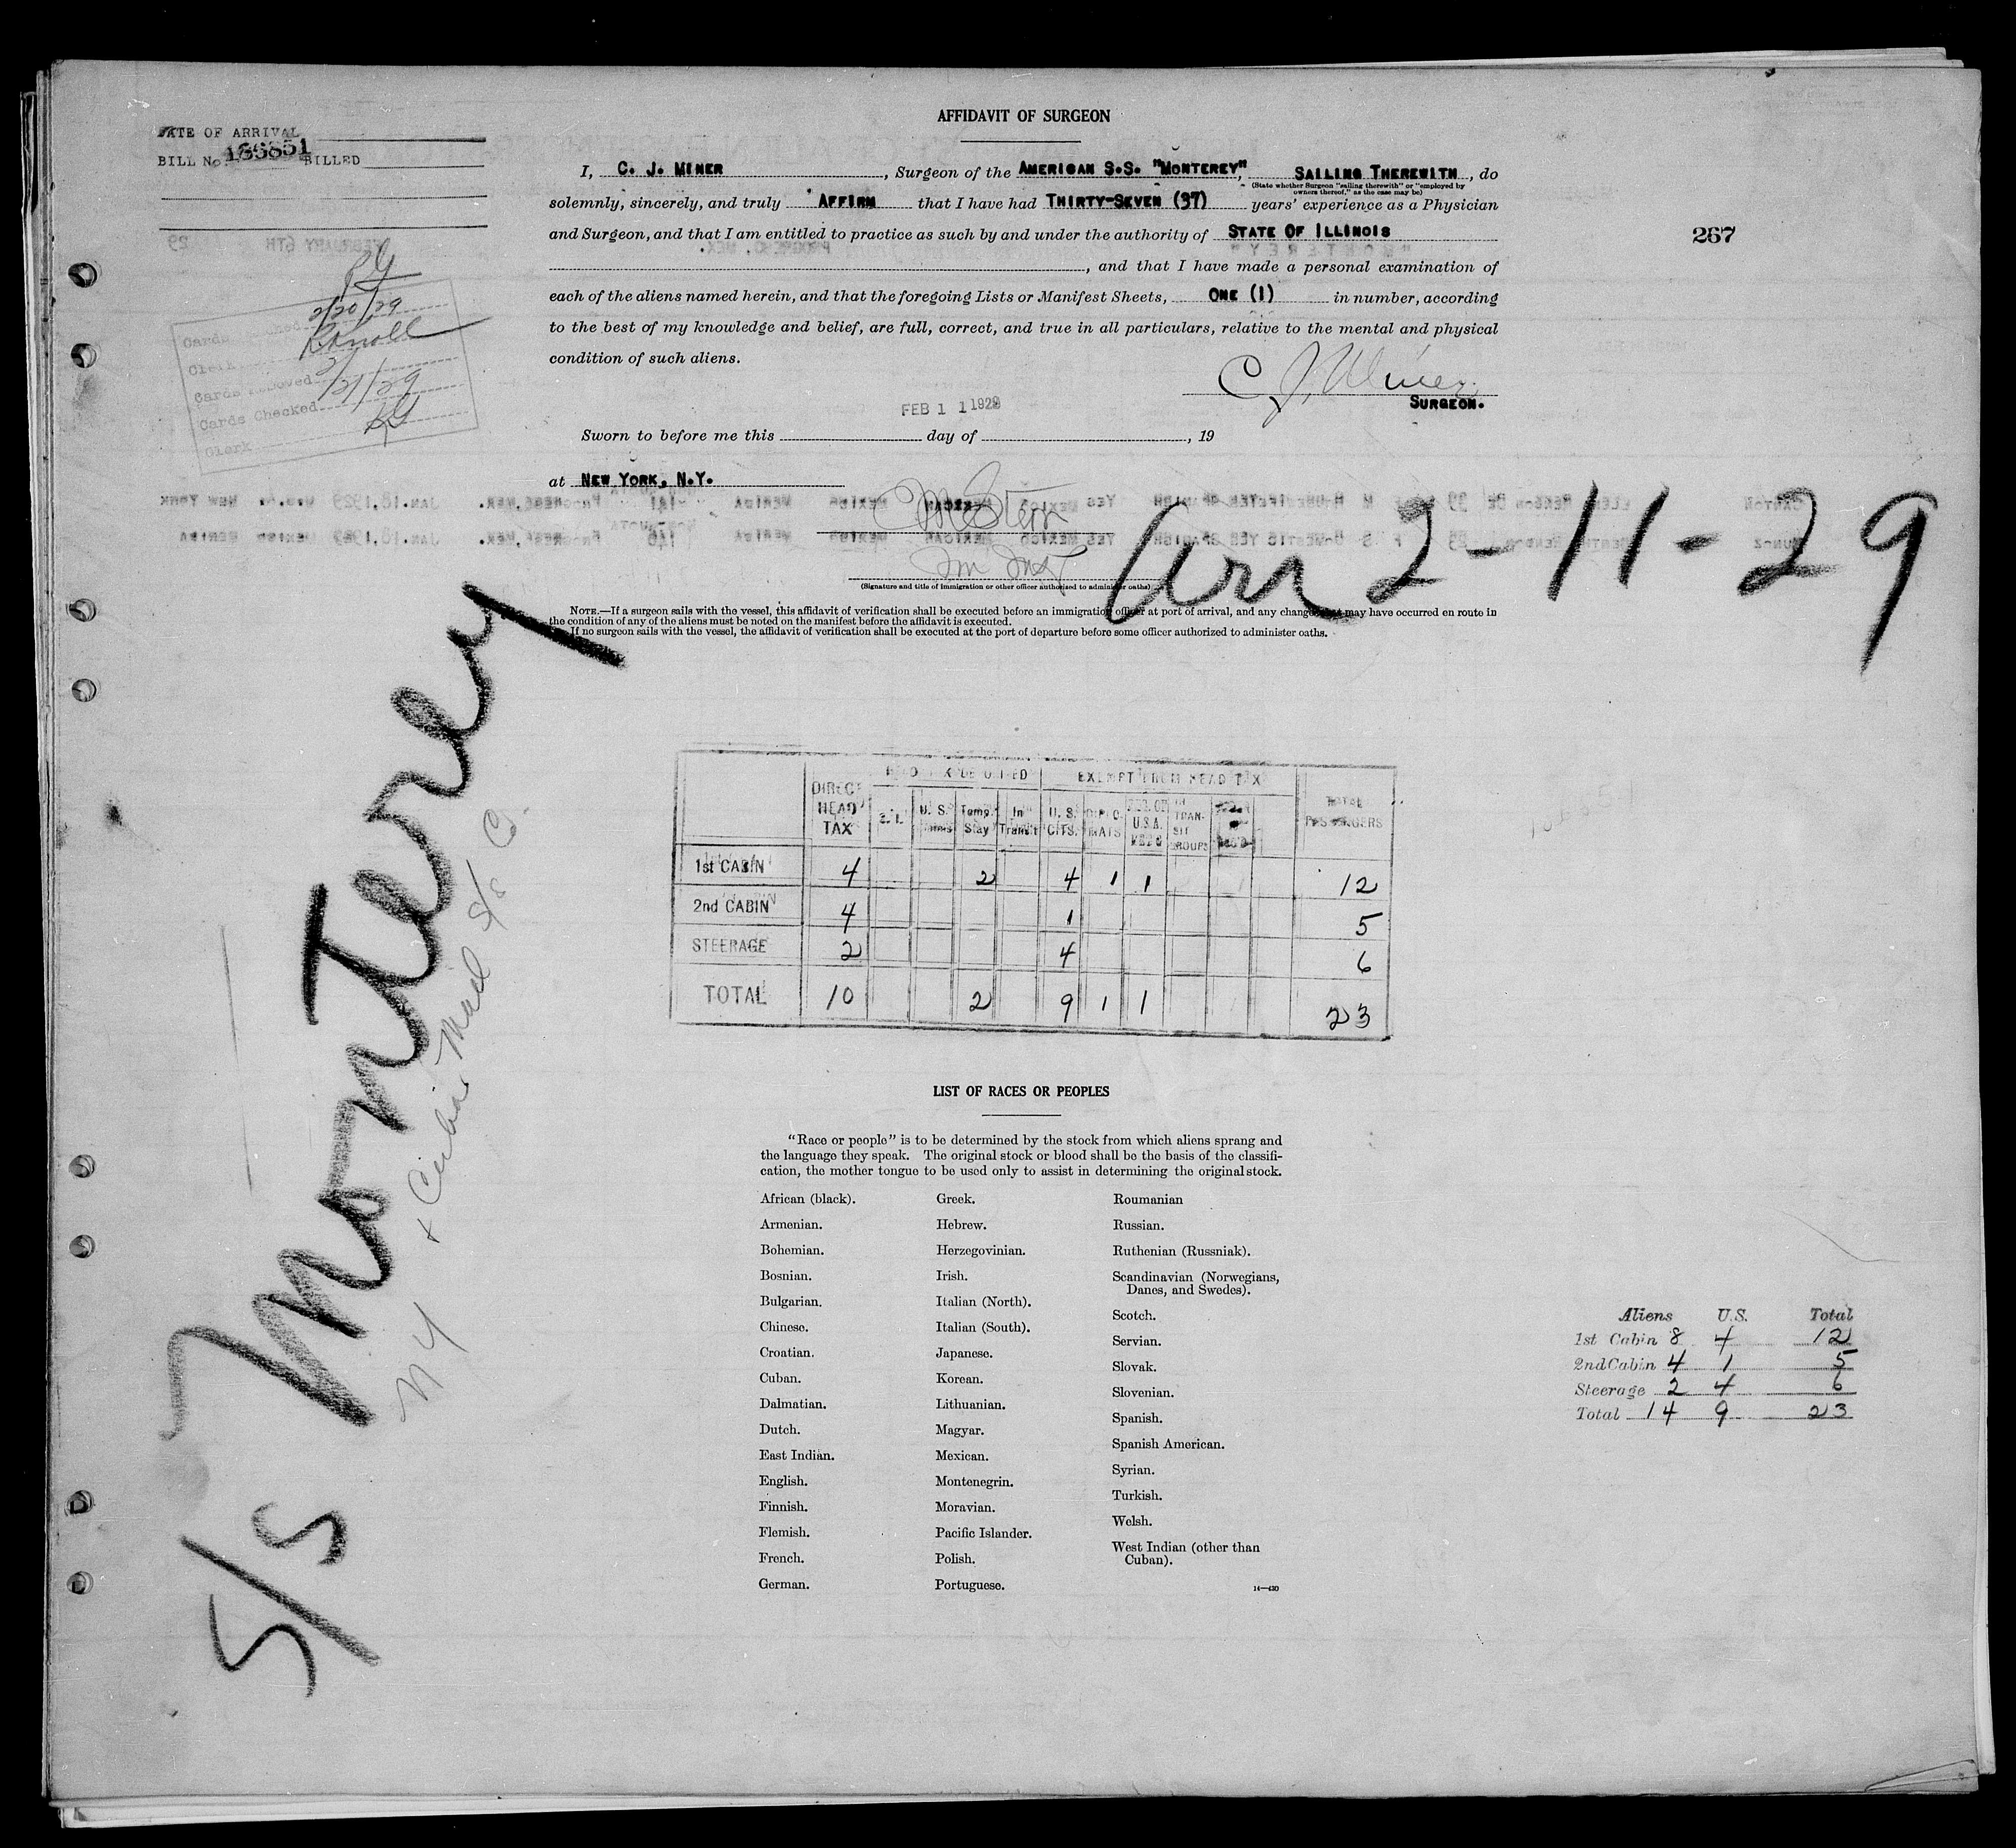 AFFIDAVIT OF SURGEON
DATE OF ARRIVAL
BILL No. 136851 BILLED
I, C. J. MINER, Surgeon of the AMERICAN S.S. "MONTEREY", SAILING THEREWITH, do
(State whether Surgeon "sailing therewith" or "employed by
owners thereof," as the case may be)
solemnly, sincerely, and truly AFFIRM that I have had THIRTY-SEVEN (37) years' experience as a Physician
and Surgeon, and that I am entitled to practice as such by and under the authority of STATE OF ILLINOIS
267
, and that I have made a personal examination of
each of the aliens named herein, and that the foregoing Lists or Manifest Sheets, ONE (1) in number, according
to the best of my knowledge and belief, are full, correct, and true in all particulars, relative to the mental and physical
condition of such aliens.
C J Miner
SURGEON.
2/20/29
Cards
Clerk
2/21/29
Cards Checked
Clerk
FEB 11 1929
Sworn to before me this day of , 19
at NEW YORK, N.Y.
Arr 2-11-29
(Signature and title of immigration or other officer authorized to administer oaths)
NOTE.—If a surgeon sails with the vessel, this affidavit of verification shall be executed before an immigration officer at port of arrival, and any change that may have occurred en route in
the condition of any of the aliens must be noted on the manifest before the affidavit is executed.
If no surgeon sails with the vessel, the affidavit of verification shall be executed at the port of departure before some officer authorized to administer oaths.
S/S Monterey
NY & Cuba Mail S/S Co.
EXEMPT FROM HEAD TAX
DIRECT HEAD TAX U. S. Temp. Stay In Transit U. S. CITS. DIPLOMATS U.S.A. IN TRANSIT GROUPS TOTAL PASSENGERS
1st CABIN 4 2 4 1 1 12
2nd CABIN 4 1 5
STEERAGE 2 4 6
TOTAL 10 2 9 1 1 23
LIST OF RACES OR PEOPLES
"Race or people" is to be determined by the stock from which aliens sprang and
the language they speak. The original stock or blood shall be the basis of the classifi-
cation, the mother tongue to be used only to assist in determining the original stock.
African (black).
Armenian.
Bohemian.
Bosnian.
Bulgarian.
Chinese.
Croatian.
Cuban.
Dalmatian.
Dutch.
East Indian.
English.
Finnish.
Flemish.
French.
German.
Greek.
Hebrew.
Herzegovinian.
Irish.
Italian (North).
Italian (South).
Japanese.
Korean.
Lithuanian.
Magyar.
Mexican.
Montenegrin.
Moravian.
Pacific Islander.
Polish.
Portuguese.
Roumanian
Russian.
Ruthenian (Russniak).
Scandinavian (Norwegians,
Danes, and Swedes).
Scotch.
Servian.
Slovak.
Slovenian.
Spanish.
Spanish American.
Syrian.
Turkish.
Welsh.
West Indian (other than
Cuban).
14—420
Aliens U.S. Total
1st Cabin 8 4 12
2nd Cabin 4 1 5
Steerage 2 4 6
Total 14 9 23